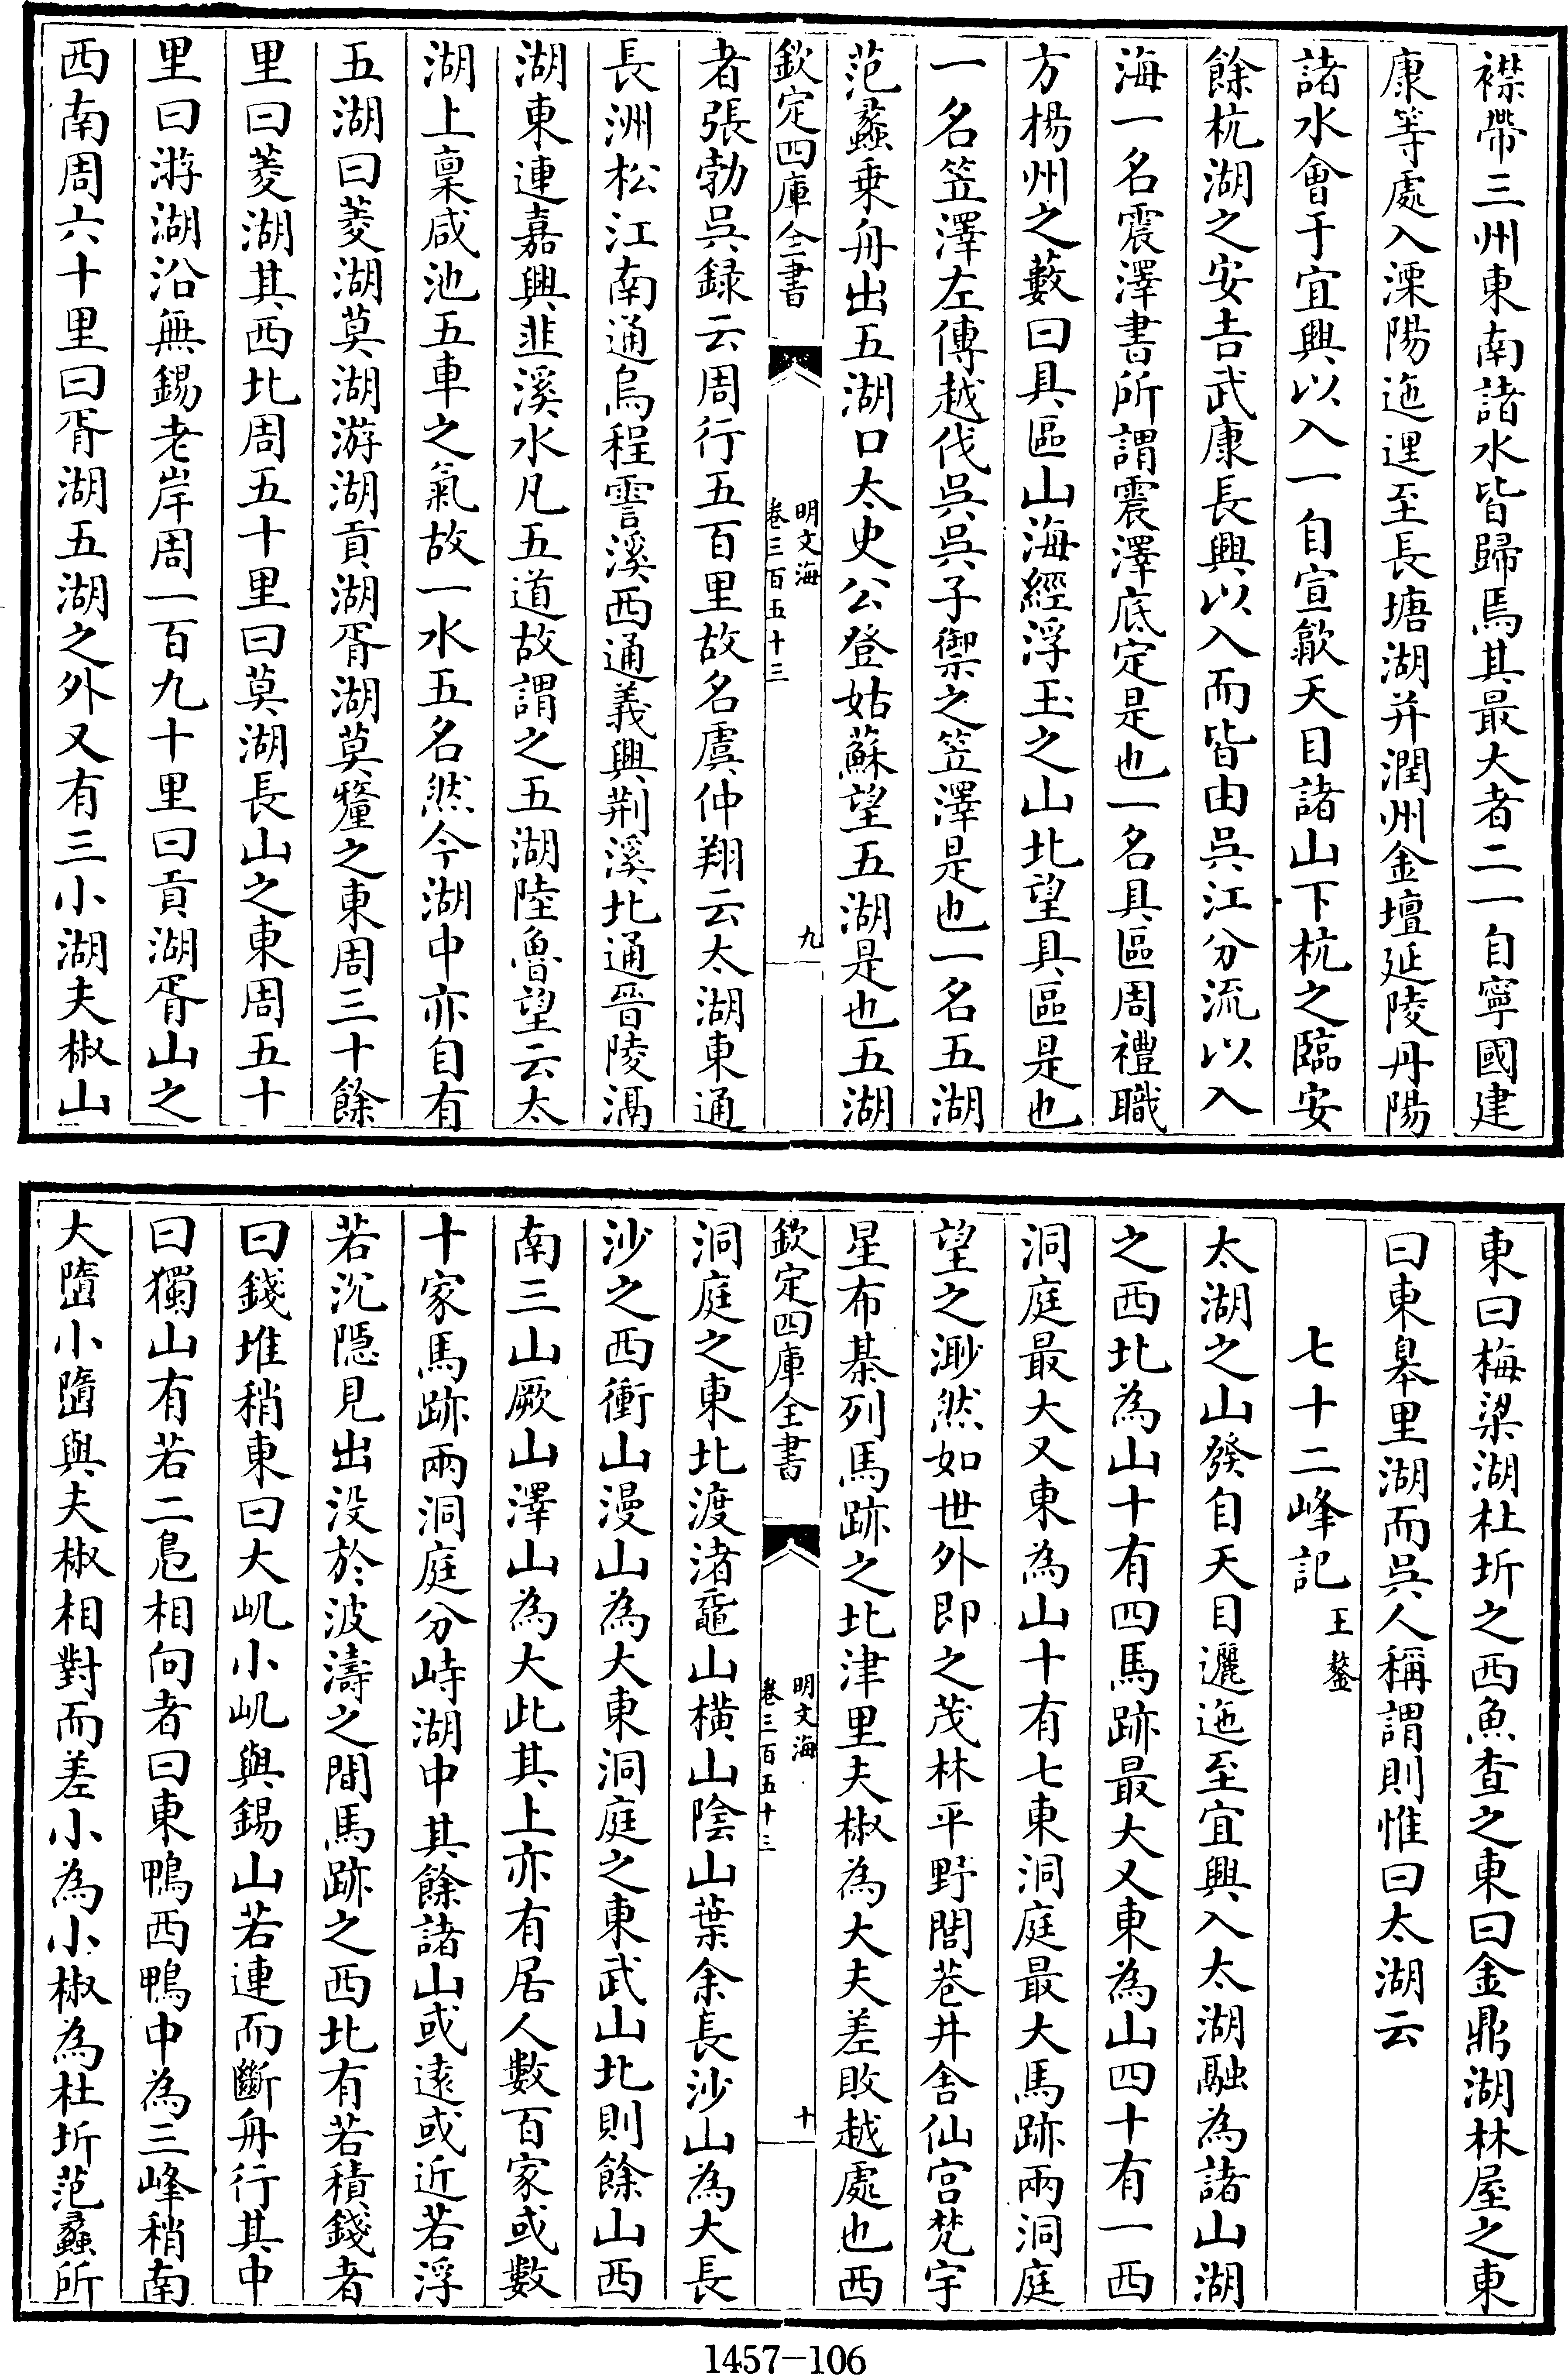 襟帶三州東南諸水皆歸焉其最大者二一自寧國建
康等處入溧陽迤邐至長塘湖并潤州金壇延陵丹陽
諸水會于宜興以入一自宣歙天目諸山下杭之臨安
餘杭湖之安吉武康長興以入而皆由吳江分流以入
海一名震澤書所謂震澤底定是也一名具區周禮職
方楊州之藪曰具區山海經浮玉之山北望具區是也
一名笠澤左傳越伐吳吳子禦之笠澤是也一名五湖
范蠡乗舟出五湖口太史公登姑蘇望五湖是也五湖
欽定四庫全書
明文海
卷三百五十三
九
者張勃吳録云周行五百里故名虞仲翔云太湖東通
長洲松江南通烏程霅溪西通義興荆溪北通晉陵滆
湖東連嘉興韭溪水凡五道故謂之五湖陸魯望云太
湖上稟咸池五車之氣故一水五名然今湖中亦自有
五湖曰菱湖莫湖游湖貢湖胥湖莫釐之東周三十餘
里曰菱湖其西北周五十里曰莫湖長山之東周五十
里曰游湖沿無錫老岸周一百九十里曰貢湖胥山之
西南周六十里曰胥湖五湖之外又有三小湖夫椒山
東曰梅梁湖杜圻之西魚查之東曰金鼎湖林屋之東
曰東皋里湖而吳人稱謂則惟曰太湖云
七十二峰記王鏊
太湖之山發自天目邐迤至宜興入太湖融為諸山湖
之西北為山十有四馬跡最大又東為山四十有一西
洞庭最大又東為山十有七東洞庭最大馬跡兩洞庭
望之渺然如世外即之茂林平野閭巷井舍仙宫梵宇
星布棊列馬跡之北津里夫椒為大夫差敗越處也西
欽定四庫全書
明文海
卷三百五十三
十
洞庭之東北渡渚黿山横山陰山葉余長沙山為大長
沙之西衝山漫山為大東洞庭之東武山北則餘山西
南三山厥山澤山為大此其上亦有居人數百家或數
十家馬跡兩洞庭分峙湖中其餘諸山或遠或近若浮
若沉隱見出没於波濤之間馬跡之西北有若積錢者
曰錢堆稍東曰大屼小屼與錫山若連而斷舟行其中
曰獨山有若二鳬相向者曰東鴨西鴨中為三峰稍南
大墮小墮與夫椒相對而差小為小椒為杜圻范蠡所
1457-106